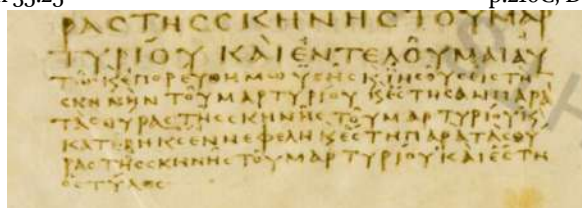 ΡΑϹΤΗϹϹΚΗΝΗϹΤΟΥΜΑΡ
ΤΥΡΙΟΥ ΚΑΙΕΝΤΕΛΟΥΜΑΙΑΥ
ΤΩ ΚΕΠΟΡΕΥΘΗΜΩΥϹΗϹΚΙΗϹΟΥϹΕΙϹΤΗ
ϹΚΗΝΗΝ ΤΟΥΜΑΡΤΥΡΙΟΥ ΚΕϹΤΗϹΑΝΠΑΡΑ
ΤΑϹΘΥΡΑϹΤΗϹϹΚΗΝΗϹ ΤΟΥΜΑΡΤΥΡΙΟΥ Κ
ΚΑΤΕΒΗΚϹΕΝΝΕΦΕΛΗ ΚΕϹΤΗΠΑΡΑΤΑϹΘΥ
ΡΑϹΤΗϹϹΚΗΝΗϹΤΟΥΜΑΡΤΥΡΙΟΥΚΑΙΕϹΤΗ
ΟϹΤΥΛΟϹ